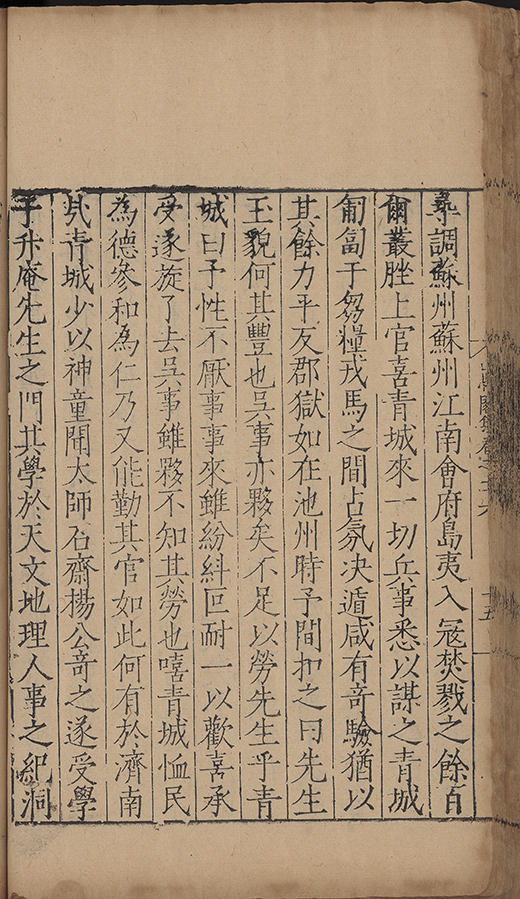 尋調蘇州蘇州江南會府島夷入寇焚戮之餘百
爾叢脞上官喜青城來一切兵事悉以謀之青城
匍匐于芻糧戎馬之間占氛决遁咸有奇驗猶以
其餘力平反郡獄如在池州時予間扣之曰先生
玉貌何其豐也吳事亦夥矣不足以勞先生乎青
城曰予性不厭事事來雖紛糾叵耐一以歡喜承
受遂旋了去吳事雖夥不知其勞也嘻青城恤民
為德參和為仁乃又能勤其官如此何有於濟南
哉青城少以神童聞太師石齋楊公奇之遂受學
于升庵先生之門其學於天文地理人事之紀洞
十五